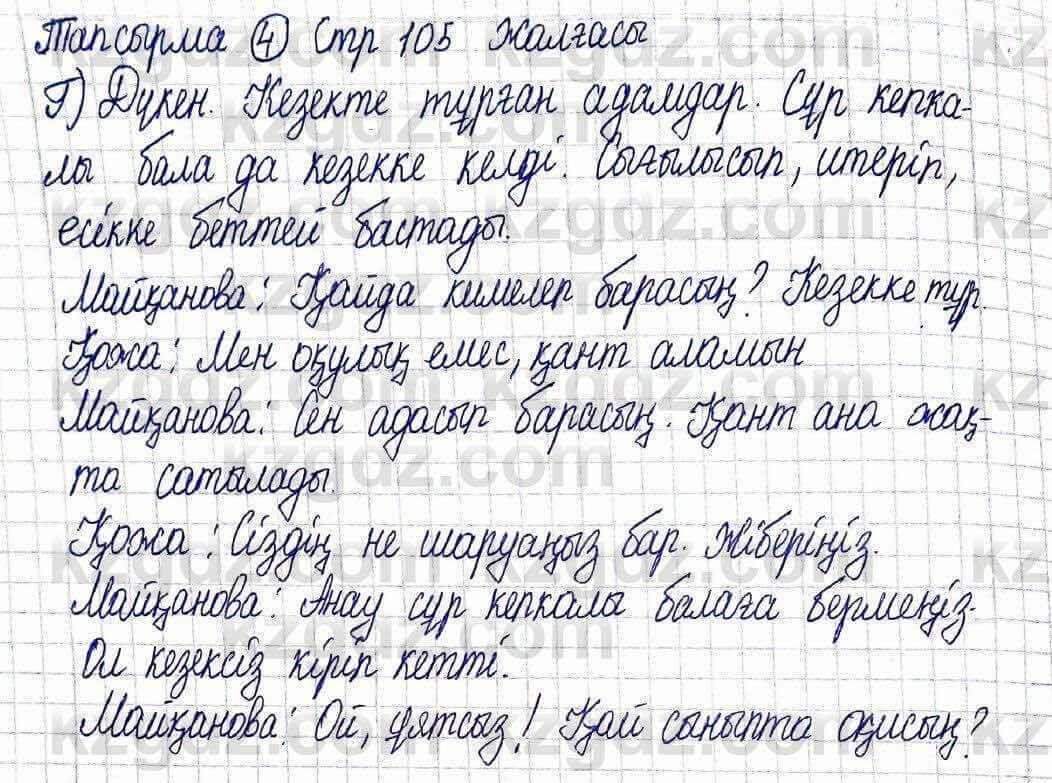 Тапсырма ④ Стр 105 Жалғасы
Г) Дүкен. Кезекте тұрған адамдар. Сұр кепка-
лы бала да кезекке келді. Сығылысып, итеріп,
есікке беттей бастады.
Майқанова: Қайда кимелеп барасың? Кезекке тұр.
Қожа: Мен оқулық емес, қант аламын
Майқанова: Сен адасып барасың. Қант ана жақ-
та сатылады.
Қожа: Сіздің не шаруаңыз бар. Жіберіңіз.
Майқанова: Анау сұр кепкалы балаға бермеңіз.
Ол кезексіз кіріп кетті.
Майқанова: Ой, ұятсыз! Қай сыныпта оқисың?
kzgdz.com